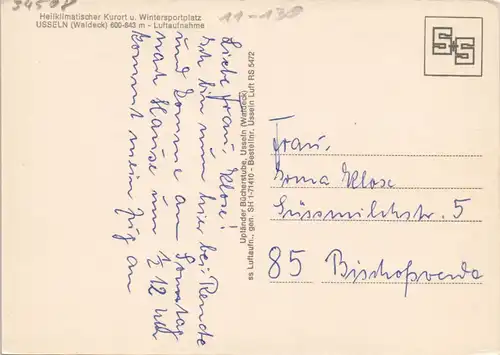 34508
11-138
Heilklimatischer Kurort u. Wintersportplatz
USSELN (Waldeck) 600-843 m - Luftaufnahme
Liebe Frau Klose!
Ich bin nun hier bei Renate
und komme am Sonntag
nach Hause um ½ 12 Uhr
kommt mein Zug an
Upländer Bücherstube, Usseln (Waldeck)
ss Luftaufn., gen. SH 1-71410 - Bestellnr. Usseln Luft RS 5472
Frau
Irma Klose
Süssmilchstr. 5
85 Bischofswerda